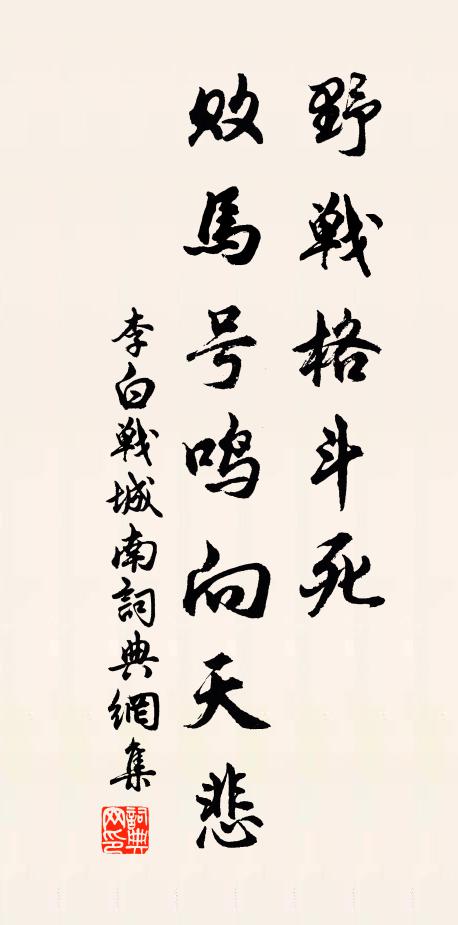 野戰格斗死
敗馬号鳴向天悲
李白戰城南詞典網集
詞典網印